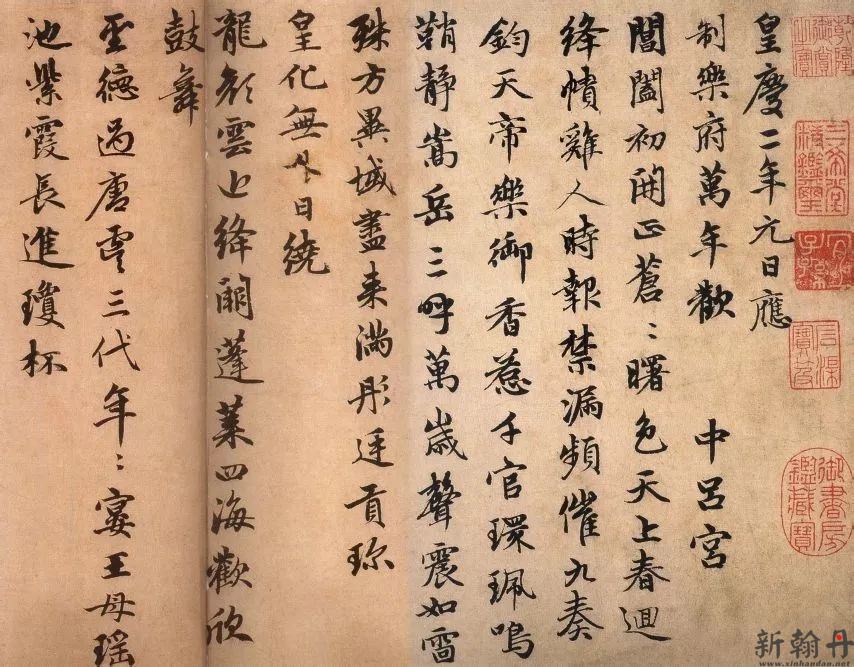 皇慶二年元日應
制樂府萬年歡 中呂宮
閶闔初開正蒼〻曙色天上春迴
絳幘雞人時報禁漏頻催九奏
鈞天帝樂御香惹千官環珮鳴
鞘靜嵩岳三呼萬歲聲震如雷
殊方異域盡來滿彤廷貢珎
皇化無外日繞
龍顏雲近絳闕蓬萊四海歡欣
鼓舞
聖德過唐虞三代年〻宴王母瑤
池紫霞長進瓊杯
三希堂精鑑璽
宜子孫
石渠寶笈
御書房鑑藏寶
新翰丹